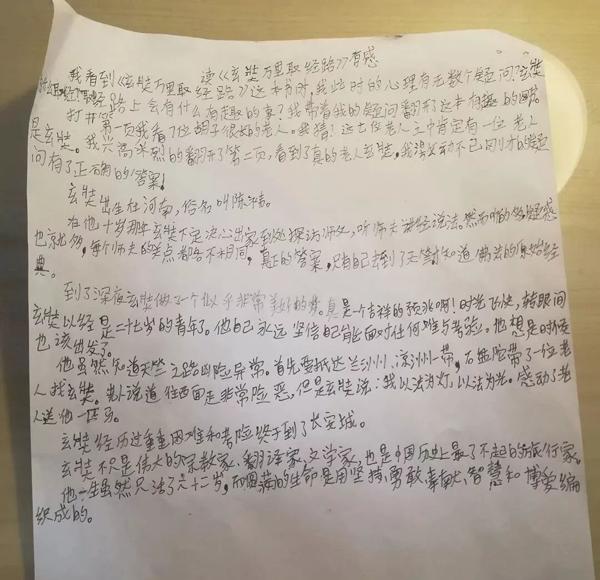 读《玄奘万里取经路》有感
我看到《玄奘万里取经路》这本书时,我此时的心理有无数个疑问?玄奘
取经路上会有什么有趣的事?我带着我的疑问翻开了这本有趣的
打开第一页我看了7位胡子很长的老人。我猜!这七位老人之中肯定有一位老人
是玄奘。我兴高采烈的翻开了第二页,看到了真的老人玄奘,我激动不已刚才的疑
问有了正确的答案!
玄奘出生在河南,俗名叫陈祎。
在他十岁那年玄奘不定决心出家到处探访师父,听师夫讲经说法。然而听的多疑惑
也就多,每个师夫的笑点都各不相同,真正的答案,只有自己去到了天竺才知道佛法的原始经
典。
到了深夜玄奘做了一个似乎非常美好的梦。真是一个吉祥的预兆啊!时光飞快,转眼间
玄奘以经是二十七岁的青年了。他自己永远坚信自己能面对任何难与考验。他想是时候
也该出发了。
他虽然知道天竺之路凶险异常。首先要抵达兰洲州、凉洲州一带,石盘陀带了一位老
人找玄奘。老人说道往西面走非常险恶,但是玄奘说:我以法为灯,以法为光。感动了老
人送他一匹马。
玄奘经历过重重困难和考险终于到了长安城。
玄奘不只是伟大的宗教家、翻译家、文学家,也是中国历史上最了不起的旅行家。
他一生虽然只活了六十二岁,而圆满的生命是用坚持、勇敢、奉献、智慧和博爱编
织成的。